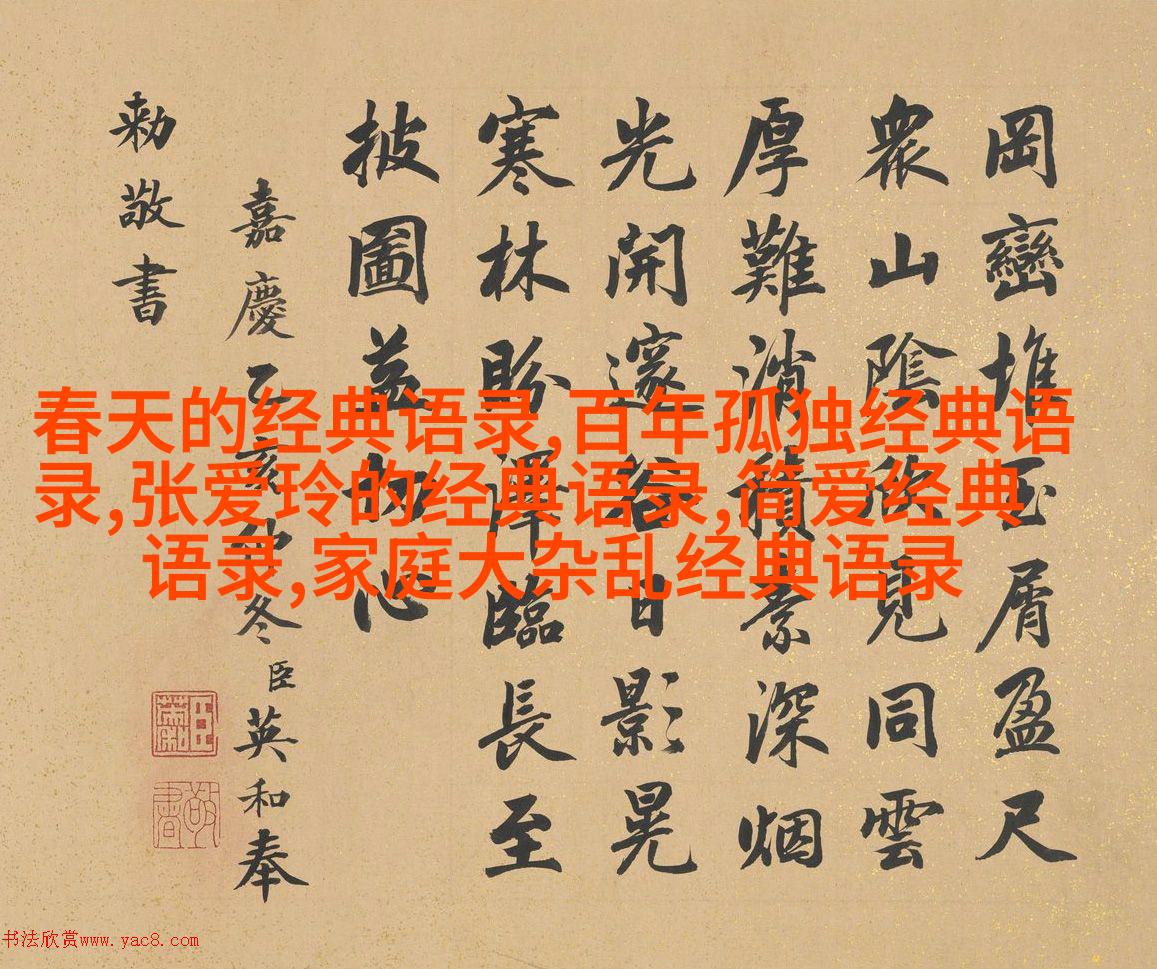 岡巒堆玉屑盈尺
衆山陰欣見同雲
厚難消積素深烟
光開邃谷日影晃
寒林盼澤臨長至
披圖益切心
嘉慶乙亥仲冬臣英和奉
勅敬書
敬書
春天的经典语录,百年孤独经典语
录,张爱玲的经典语录,简爱经典
语录,家庭大杂乱经典语录
书法欣赏www.yac8.com